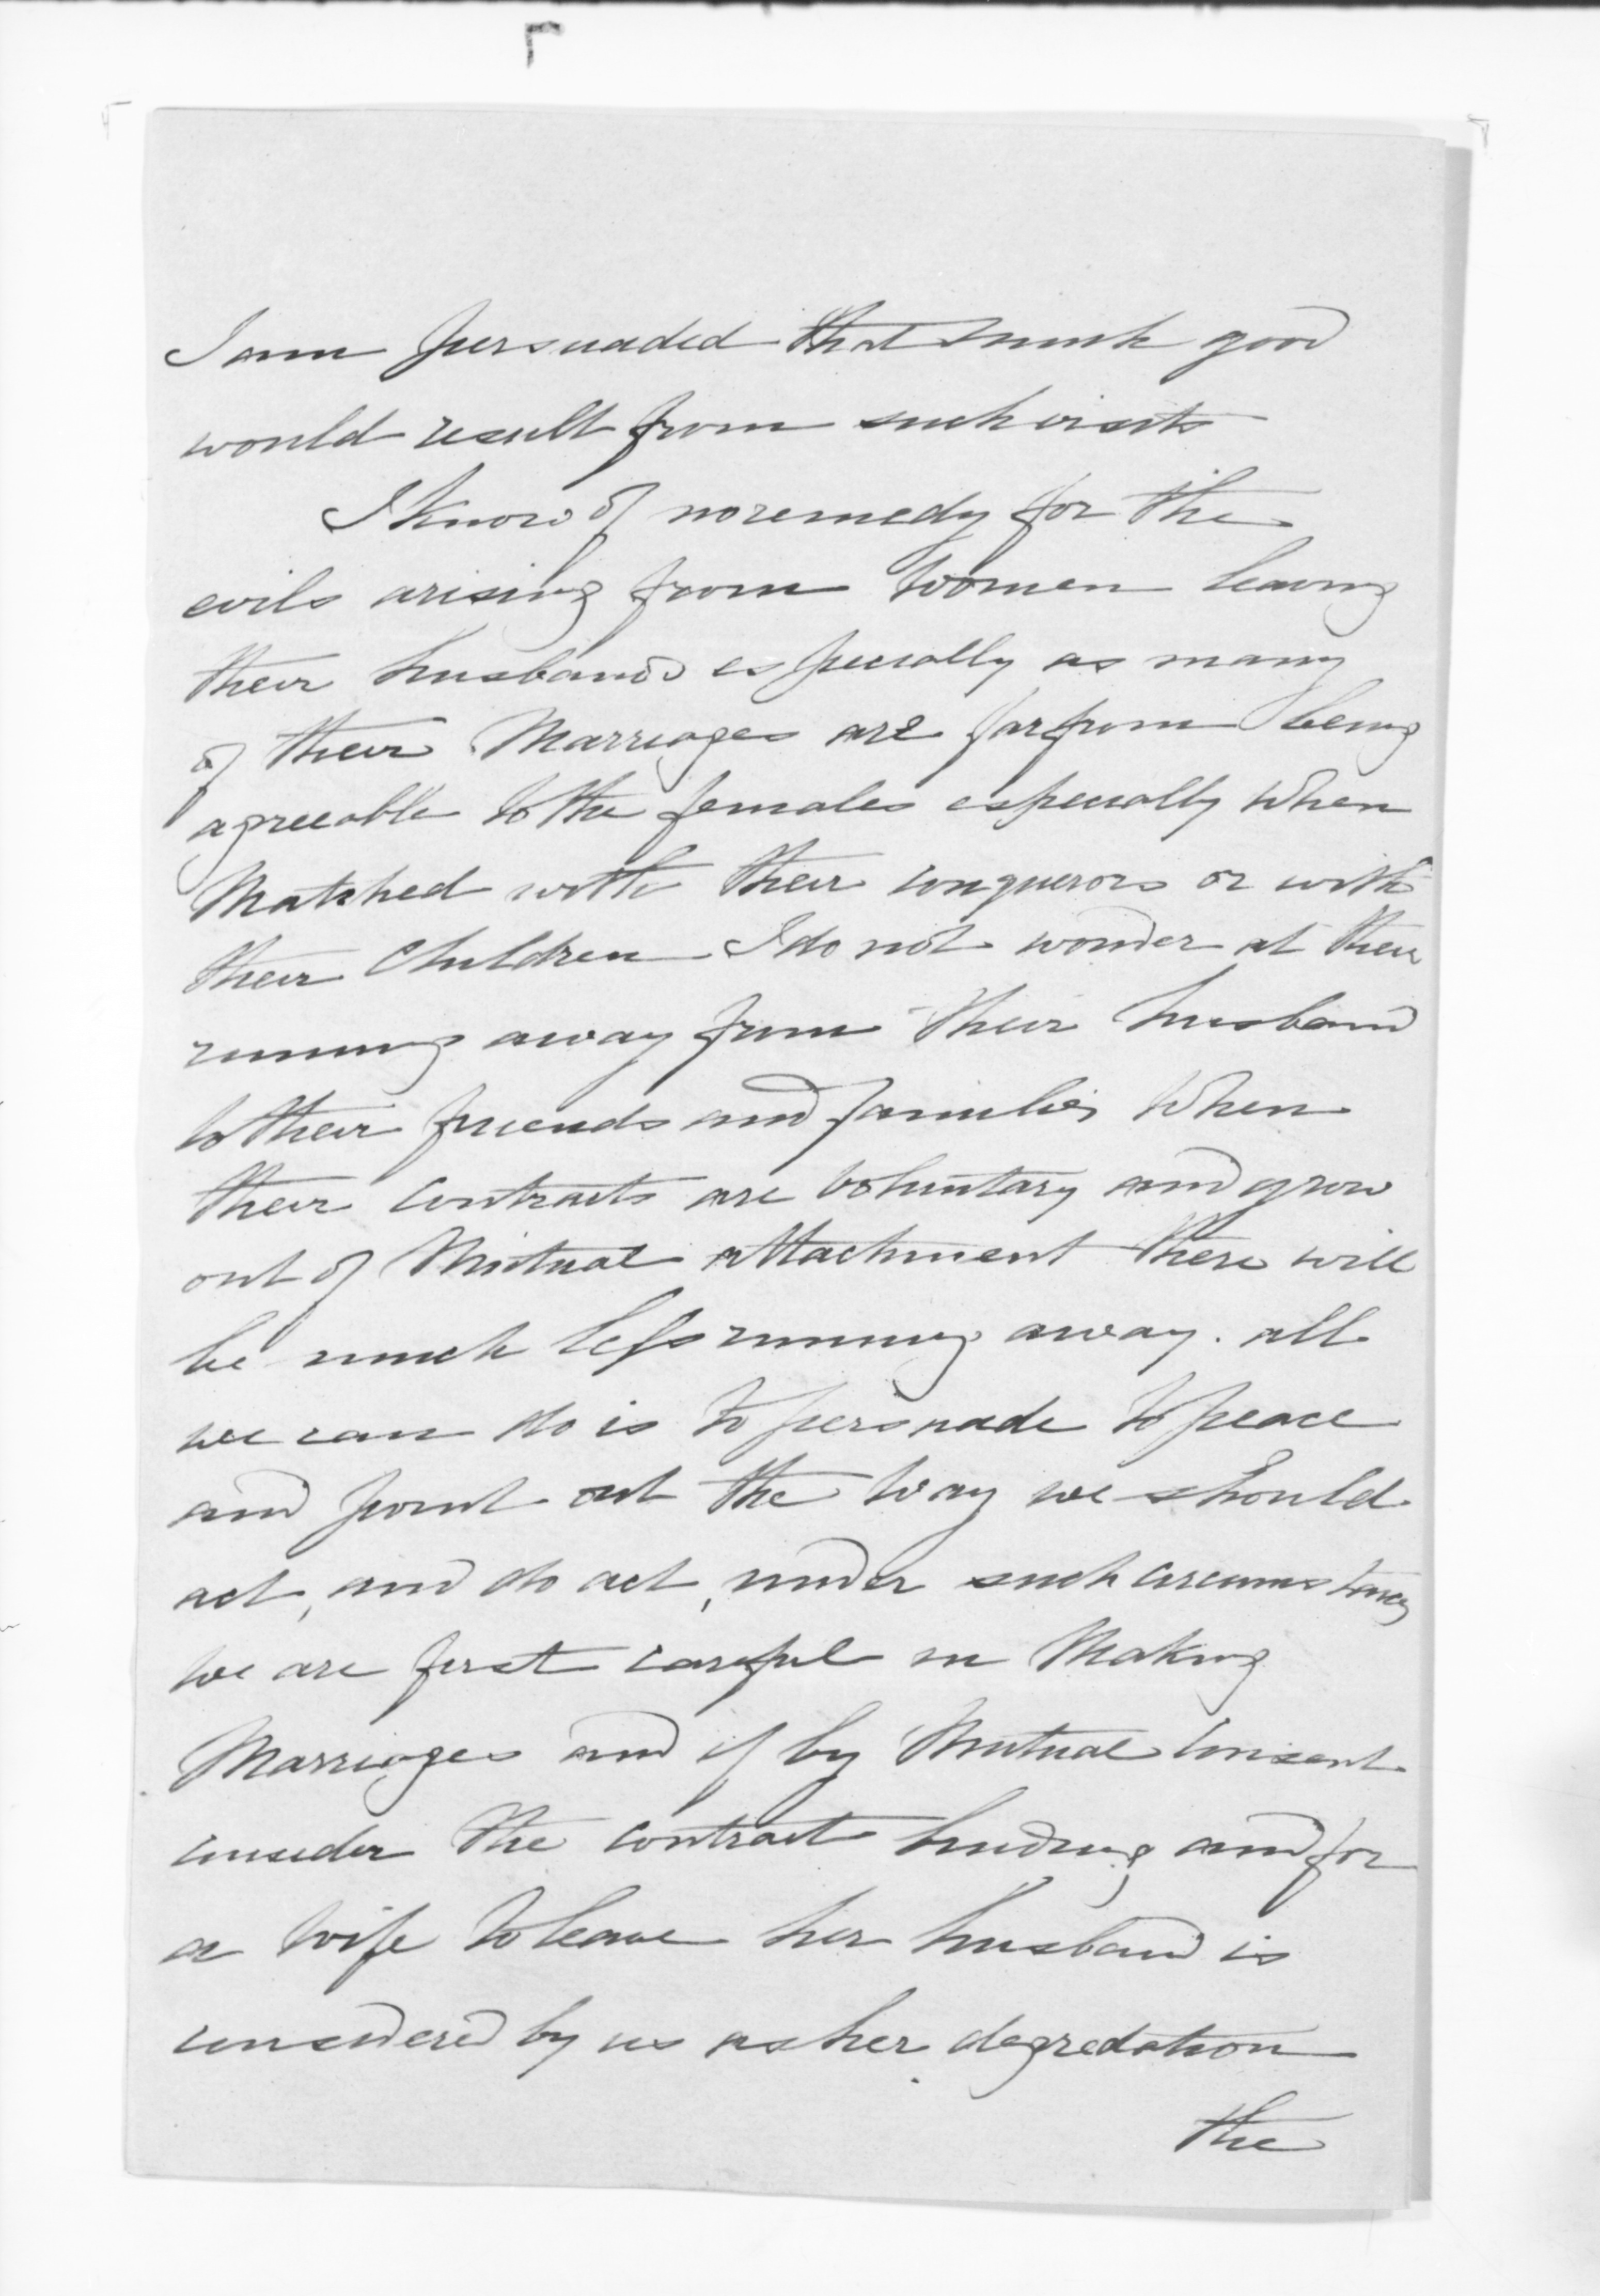 I am persuaded that much good
would result from such visits
I know of no remedy for the
evils arising from women leaving
their husbands especially as many
of their Marriages are far from being
agreeable to the females especially when
Matched with their conquerors or with
their Children I do not wonder at their
running away from their husband
to their friends and families when
their contracts are voluntary and grow
out of Mutual attachment there will
be much less running away. all
we can do is to persuade to peace
and point out the way we should
act, and do act, under such circumstances
we are first careful in Making
Marriages and if by Mutual consent
consider the contract binding and for
a wife to leave her husband is
considered by us as her degredation
the